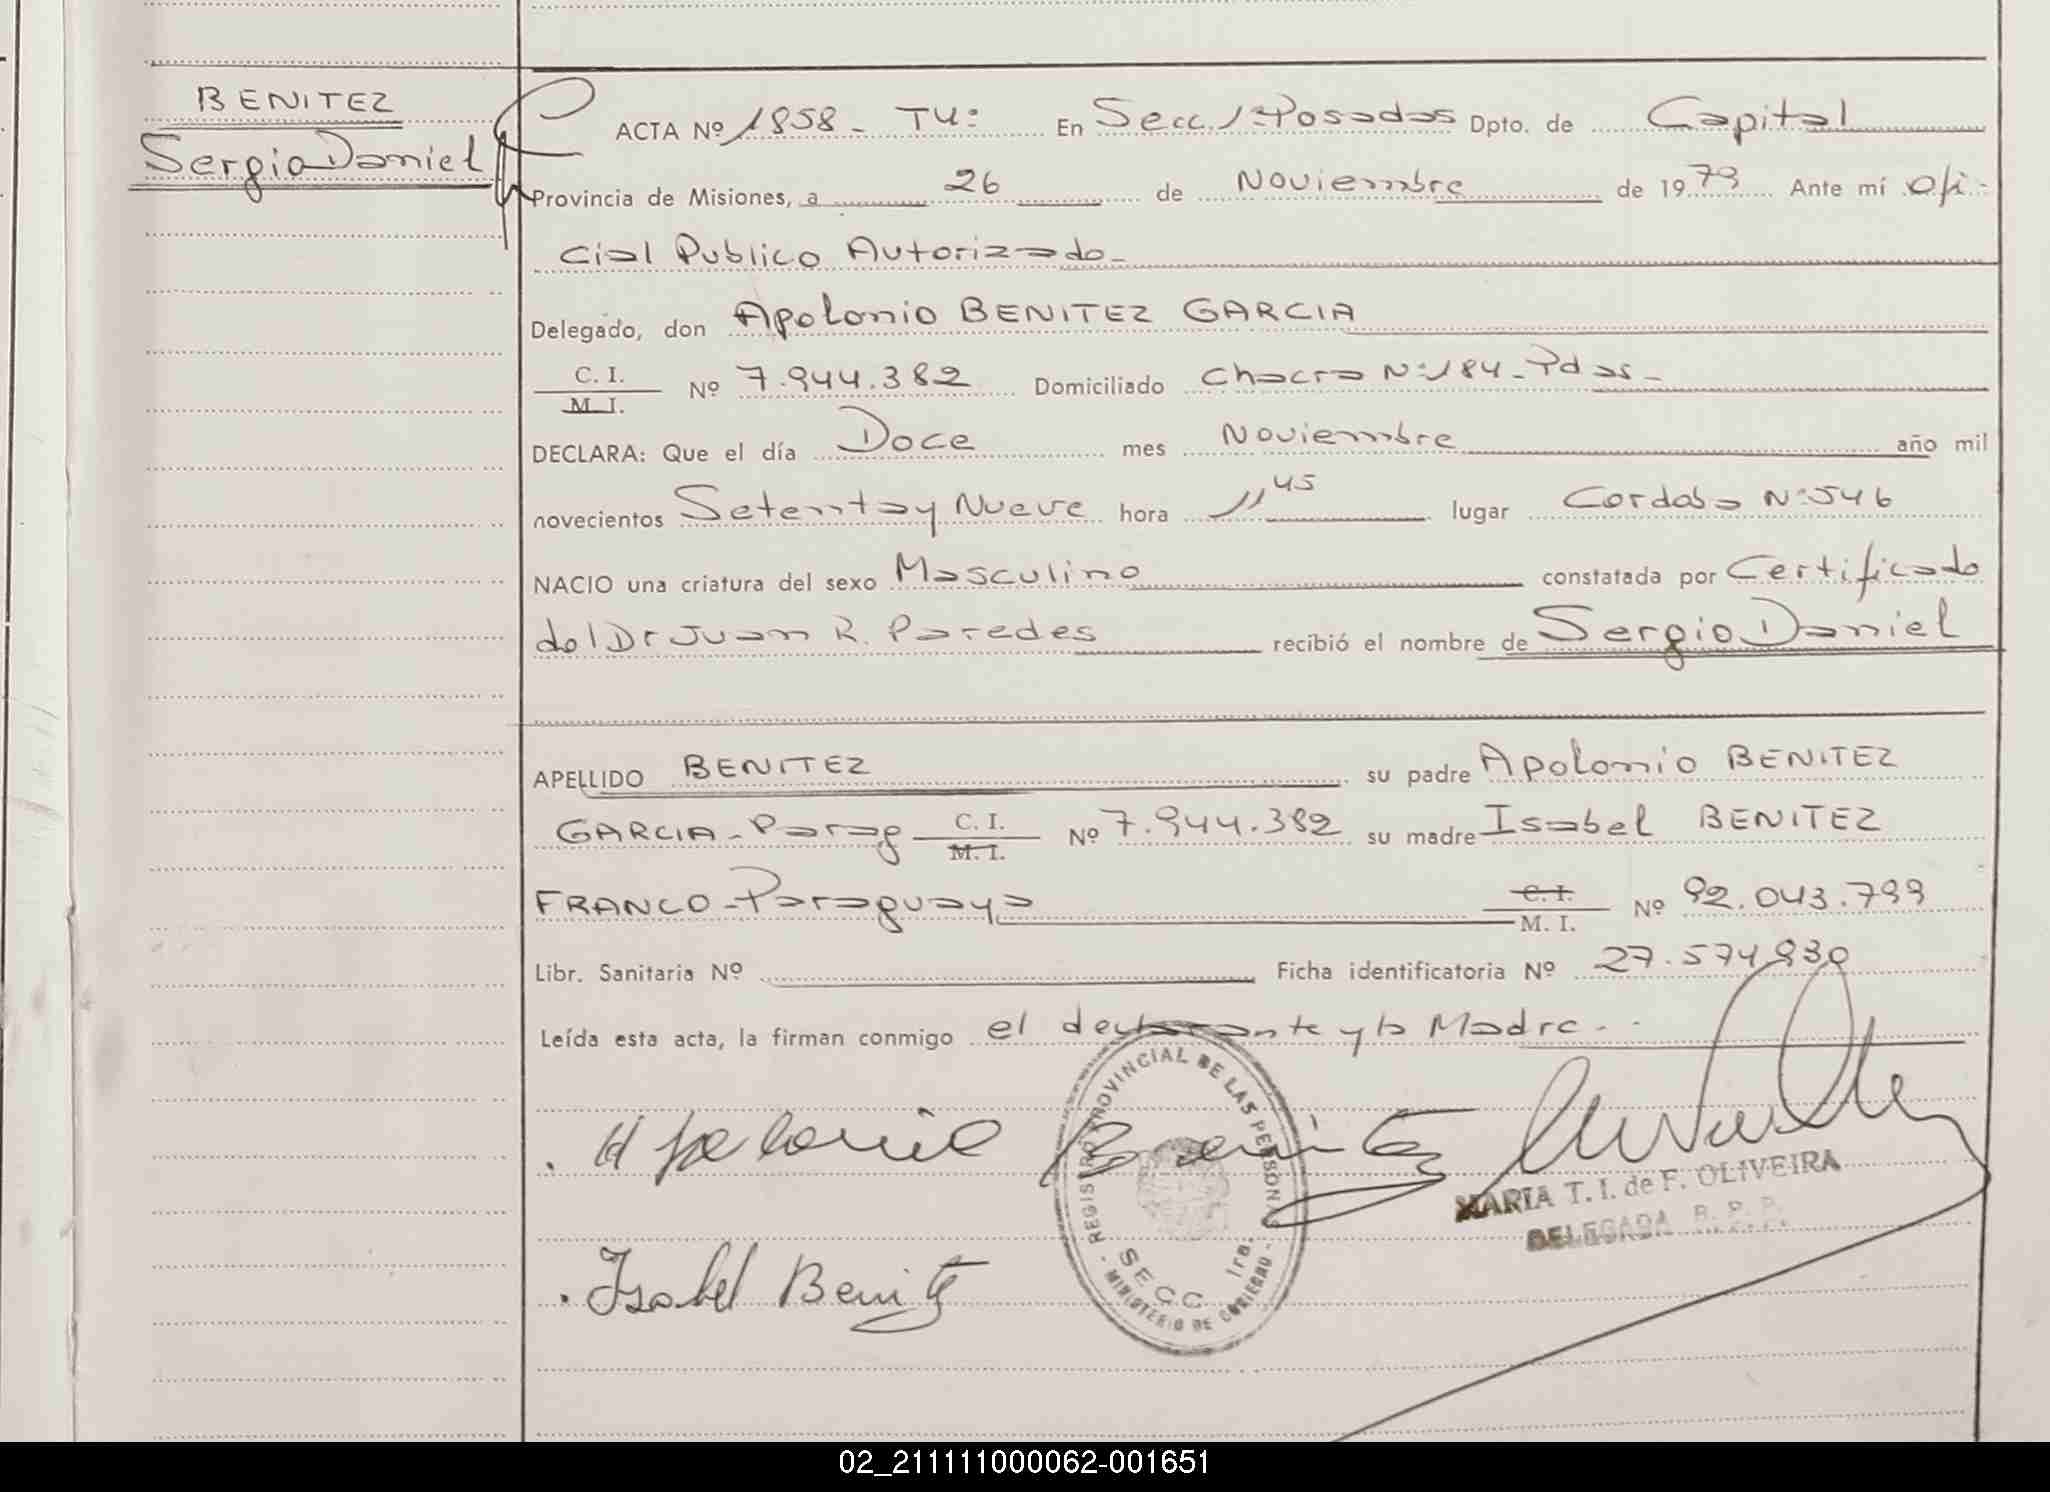 BENITEZ
Sergio Daniel
ACTA Nº 1858 - Tº4: En Secc. 1ª Posadas Dpto. de Capital
Provincia de Misiones, a 26 de Noviembre de 1979 Ante mí Ofi-
cial Publico Autorizado-
Delegado, don Apolonio BENITEZ GARCIA
C. I.
M. I. Nº 7.944.382 Domiciliado Chacra Nº 184 - Pdas -
DECLARA: Que el día Doce mes Noviembre año mil
novecientos Setenta y Nueve hora 11 45 lugar Cordoba Nº 546
NACIO una criatura del sexo Masculino constatada por Certificado
del Dr Juan R. Paredes recibió el nombre de Sergio Daniel
APELLIDO BENITEZ su padre Apolonio BENITEZ
GARCIA - Parag C. I. M. I. Nº 7.944.382 su madre Isabel BENITEZ
FRANCO - Paraguaya C. I. M. I. Nº 92.043.799
Libr. Sanitaria Nº Ficha identificatoria Nº 27.574.930
Leída esta acta, la firman conmigo el declarante y la Madre. -
Apolonio Benitez
REGISTRO PROVINCIAL DE LAS PERSONAS
SECC. 1ra.
- MINISTERIO DE GOBIERNO -
MARIA T. I. de F. OLIVEIRA
DELEGADA R. P. P.
Isabel Benitez
02_211111000062-001651